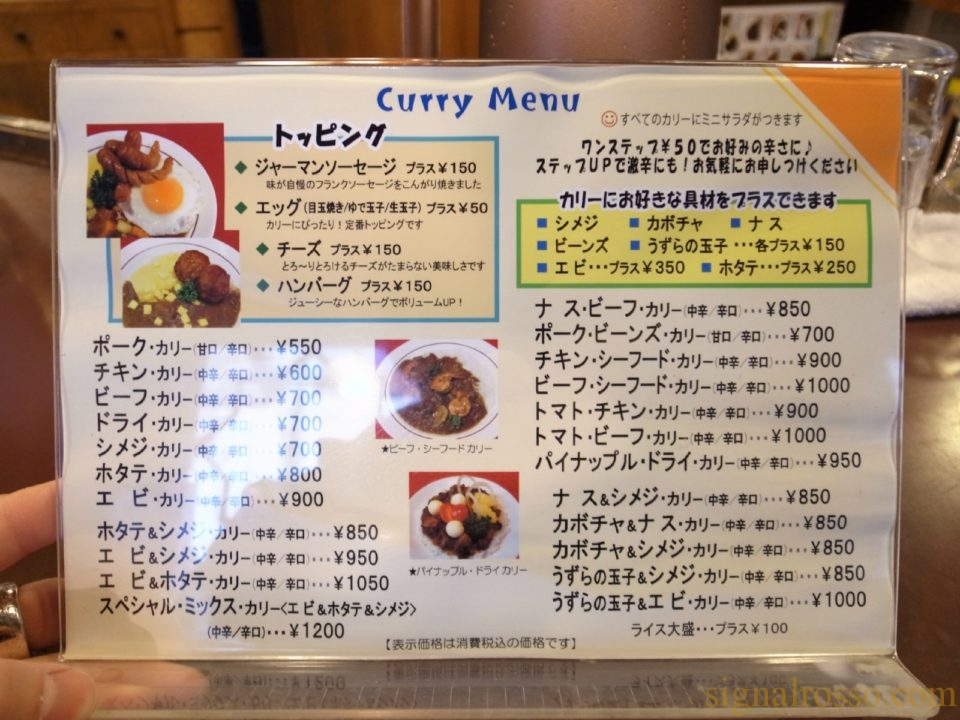 Curry Menu
トッピング
◆ ジャーマンソーセージ プラス¥150
味が自慢のフランクソーセージをこんがり焼きました
◆ エッグ(目玉焼き/ゆで玉子/生玉子) プラス¥50
カリーにぴったり!定番トッピングです
◆ チーズ プラス¥150
とろ~りとろけるチーズがたまらない美味しさです
◆ ハンバーグ プラス¥150
ジューシーなハンバーグでボリュームUP!
ポーク・カリー(甘口/辛口)・・・¥550
チキン・カリー(中辛/辛口)・・・¥600
ビーフ・カリー(中辛/辛口)・・・¥700
ドライ・カリー(中辛/辛口)・・・¥700
シメジ・カリー(中辛/辛口)・・・¥700
ホタテ・カリー(中辛/辛口)・・・¥800
エ ビ・カリー(中辛/辛口)・・・¥900
ホタテ&シメジ・カリー(中辛/辛口)・・・¥850
エ ビ&シメジ・カリー(中辛/辛口)・・・¥950
エ ビ&ホタテ・カリー(中辛/辛口)・・・¥1050
スペシャル・ミックス・カリー<エビ&ホタテ&シメジ>
(中辛/辛口)・・・¥1200
★ビーフ・シーフードカリー
★パイナップル・ドライカリー
すべてのカリーにミニサラダがつきます
ワンステップ¥50でお好みの辛さに♪
ステップUPで激辛にも!お気軽にお申しつけください
カリーにお好きな具材をプラスできます
■ シメジ ■ カボチャ ■ ナ ス
■ ビーンズ ■ うずらの玉子 ・・・各プラス¥150
■ エ ビ・・・プラス¥350 ■ ホタテ・・・プラス¥250
ナ ス・ビーフ・カリー(中辛/辛口)・・・¥850
ポーク・ビーンズ・カリー(甘口/辛口)・・・¥700
チキン・シーフード・カリー(中辛/辛口)・・・¥900
ビーフ・シーフード・カリー(中辛/辛口)・・・¥1000
トマト・チキン・カリー(中辛/辛口)・・・¥900
トマト・ビーフ・カリー(中辛/辛口)・・・¥1000
パイナップル・ドライ・カリー(中辛/辛口)・・・¥950
ナ ス&シメジ・カリー(中辛/辛口)・・・¥850
カボチャ&ナ ス・カリー(中辛/辛口)・・・¥850
カボチャ&シメジ・カリー(中辛/辛口)・・・¥850
うずらの玉子&シメジ・カリー(中辛/辛口)・・・¥850
うずらの玉子&エ ビ・カリー(中辛/辛口)・・・¥1000
ライス大盛・・・プラス¥100
【表示価格は消費税込の価格です】
signalrosso.com